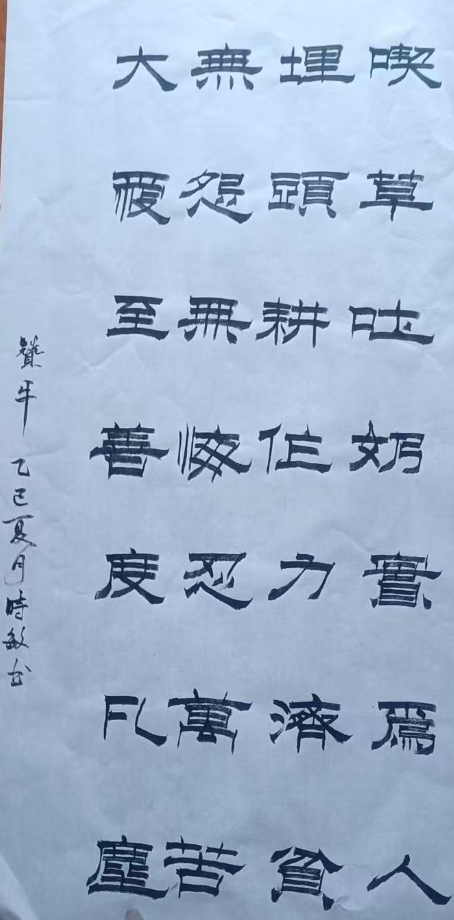 喫草吐奶實爲人
埋頭耕作力濟貧
無怨無悔忍萬苦
大覆至善度凡塵
贊牛 乙巳夏月時敏书